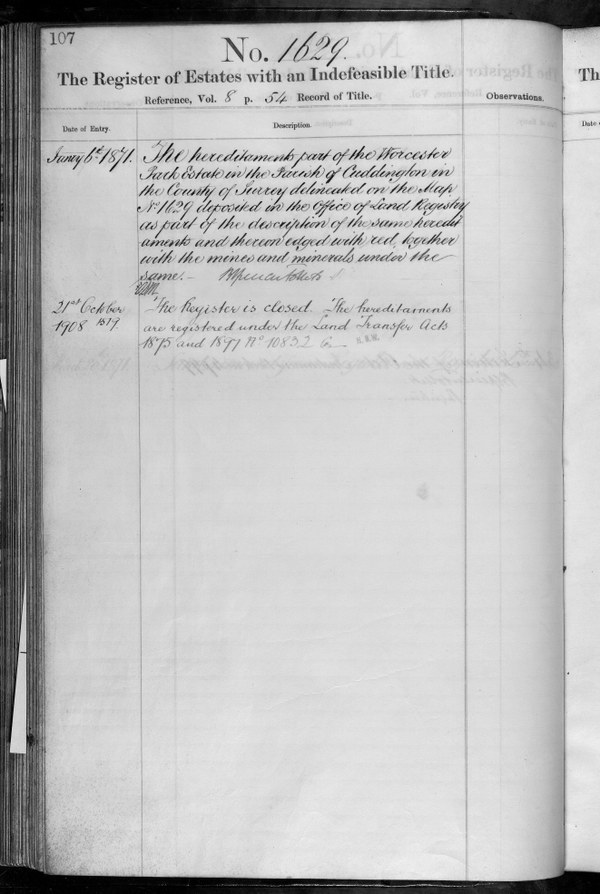 107
No. 1629.
The Register of Estates with an Indefeasible Title.
Reference, Vol. 8 p. 54 Record of Title.
Observations.
Date of Entry.
Description.
Janry 6th 1871.
The hereditaments part of the Worcester
Park Estate in the Parish of Cuddington in
the County of Surrey delineated on the Map
No 1629 deposited in the Office of Land Registry
as part of the description of the same heredit
aments and thereon edged with red, together
with the mines and minerals under the
same. –
21st October
1908 1519
The Register is closed. The hereditaments
are registered under the Land Transfer Acts
1875 and 1897 No 10832
Th
Date